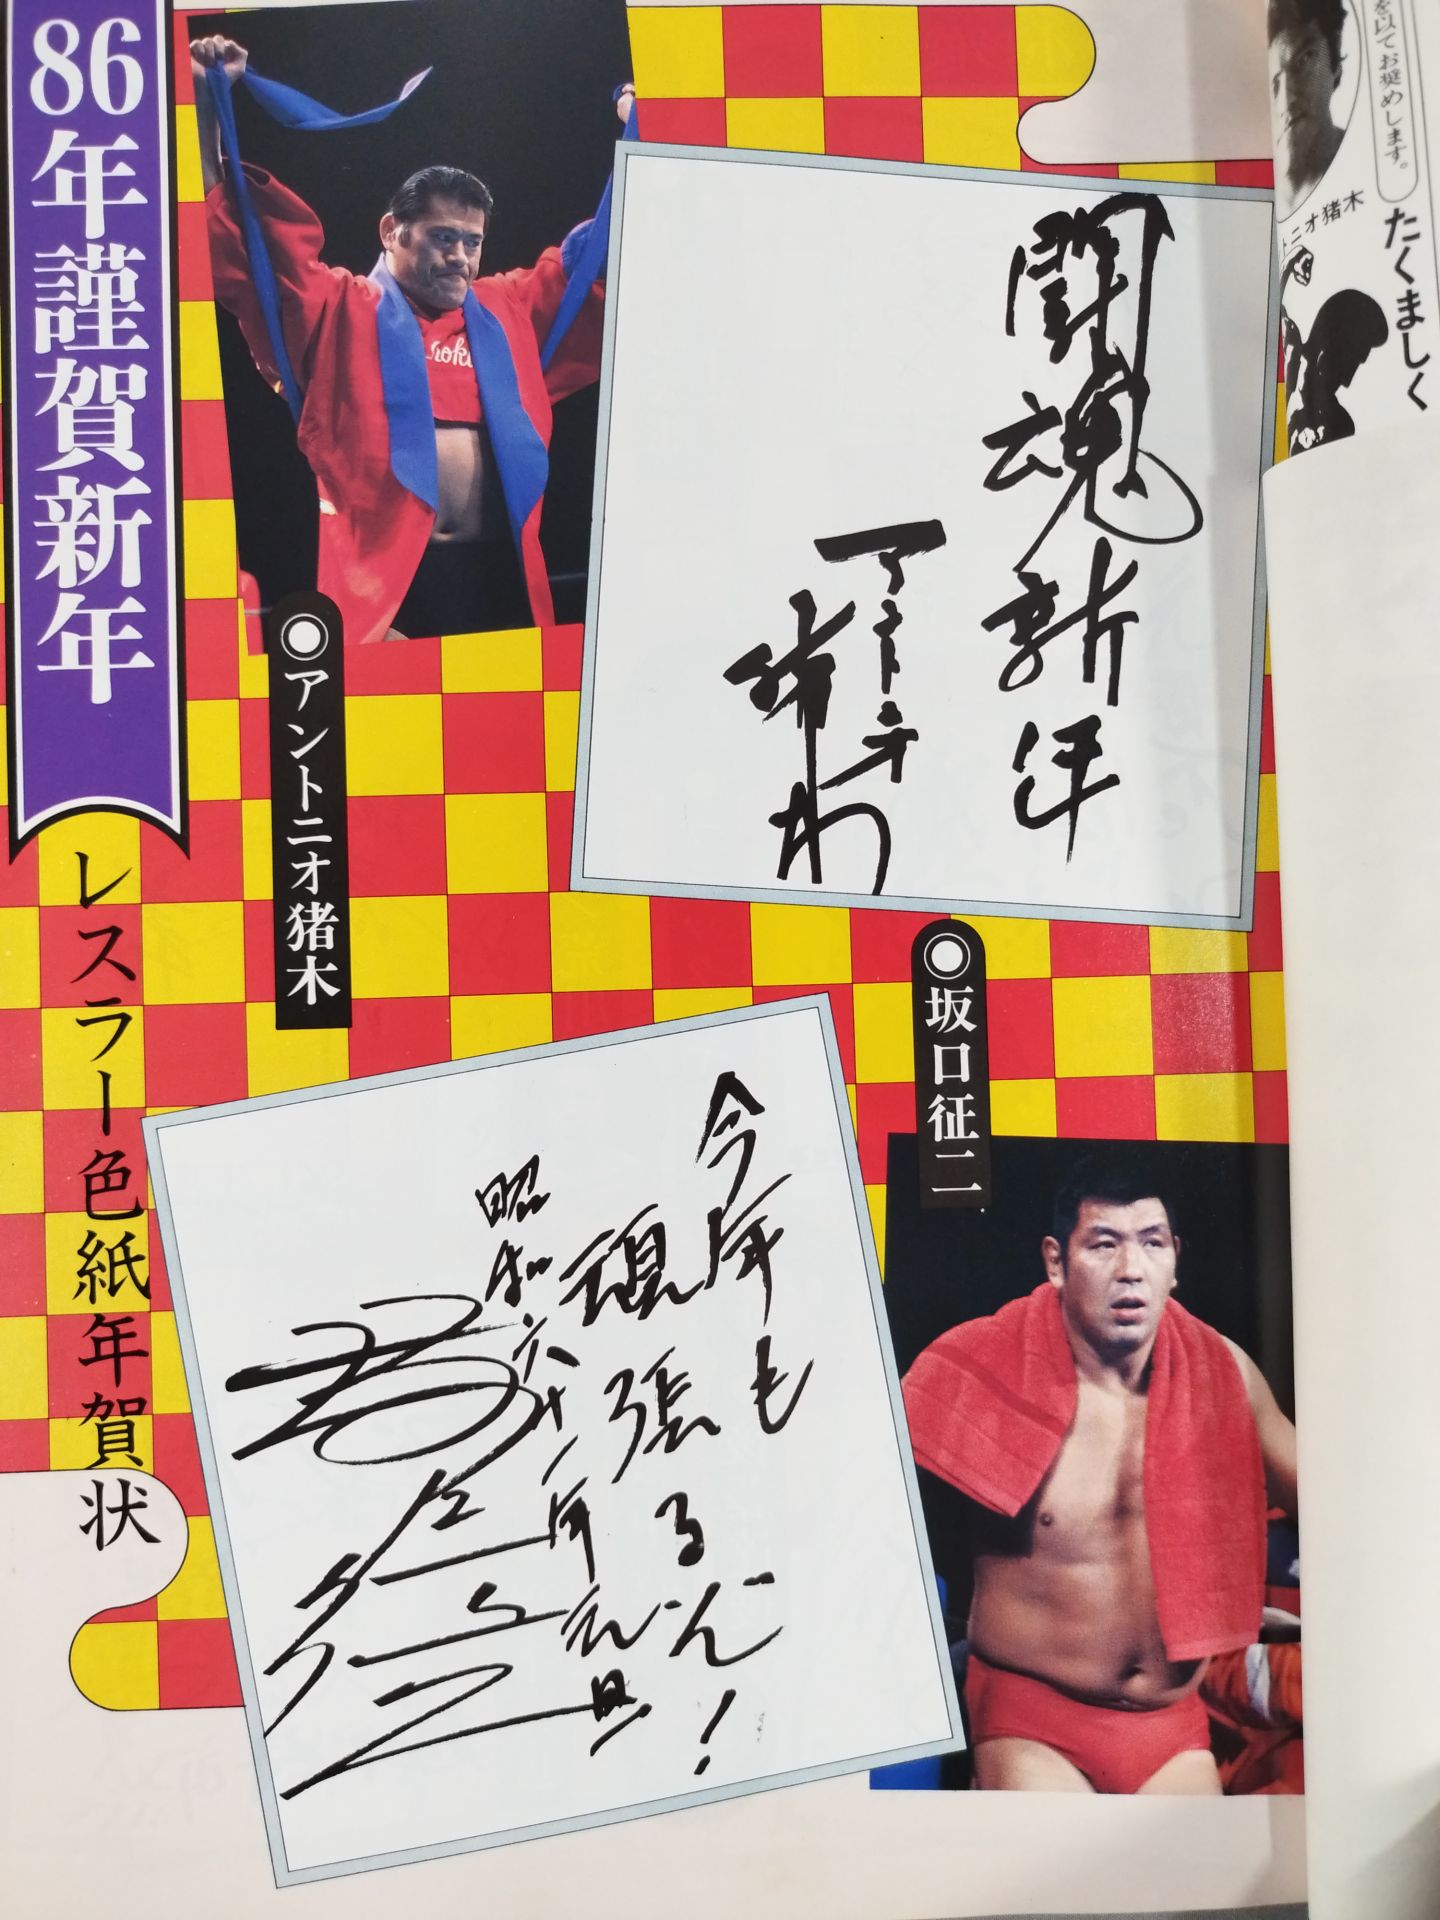 86年謹賀新年
レスラー色紙年賀状
◉アントニオ猪木
闘魂新年
アントニオ
猪木
◉坂口征二
今年も
頑張るんじゃ!
昭和六十一年元旦
を以てお奨めします。
トニオ猪木
たくましく